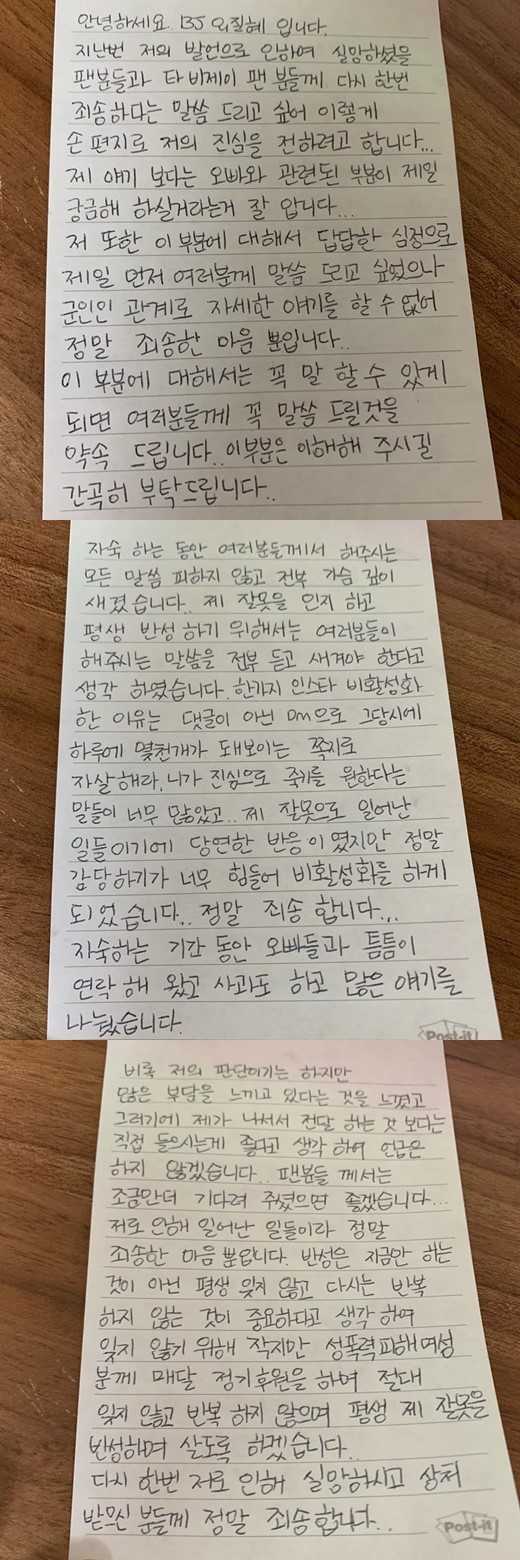 안녕하세요. BJ 외질혜 입니다.
지난번 저의 발언으로 인하여 실망하셨을
팬분들과 타 비제이 팬 분들께 다시 한번
죄송하다는 말씀 드리고 싶어 이렇게
손 편지로 저의 진심을 전하려고 합니다...
제 얘기 보다는 오빠와 관련된 부분이 제일
궁금해 하실거라는거 잘 압니다...
저 또한 이 부분에 대해서 답답한 심정으로
제일 먼저 여러분께 말씀 드리고 싶었으나
군인인 관계로 자세한 얘기를 할 수 없어
정말 죄송한 마음 뿐입니다..
이 부분에 대해서는 꼭 말 할 수 있게
되면 여러분들께 꼭 말씀 드릴것을
약속 드립니다.. 이부분은 이해해 주시길
간곡히 부탁드립니다..
자숙 하는 동안 여러분들께서 해주시는
모든 말씀 피하지 않고 전부 가슴 깊이
새겼습니다.. 제 잘못을 인지 하고
평생 반성 하기 위해서는 여러분들이
해주시는 말씀을 전부 듣고 새겨야 한다고
생각 하였습니다. 한가지 인스타 비활성화
한 이유는 댓글이 아닌 Dm으로 그당시에
하루에 몇천개가 돼보이는 쪽지로
자살해라, 니가 진심으로 죽기를 원한다는
말들이 너무 많았고.. 제 잘못으로 일어난
일들이기에 당연한 반응이였지만 정말
감당하기가 너무 힘들어 비활성화를 하게
되었습니다.. 정말 죄송 합니다...
자숙하는 기간 동안 오빠들과 틈틈이
연락 해 왔고 사과도 하고 많은 얘기를
나눴습니다.
Post-it
비록 저의 판단이기는 하지만
많은 부담을 느끼고 있다는 것을 느꼈고
그러기에 제가 나서서 전달 하는 것 보다는
직접 들으시는게 좋다고 생각 하여 언급은
하지 않겠습니다.. 팬분들 께서는
조금만더 기다려 주셨으면 좋겠습니다...
저로 인해 일어난 일들이라 정말
죄송한 마음 뿐입니다. 반성은 지금만 하는
것이 아닌 평생 잊지 않고 다시는 반복
하지 않는 것이 중요하다고 생각 하여
잊지 않기 위해 작지만 성폭력피해여성
분께 매달 정기후원을 하여 절대
잊지 않고 반복 하지 않으며 평생 제 잘못을
반성하며 살도록 하겠습니다..
다시 한번 저로 인해 실망하시고 상처
받으신 분들께 정말 죄송합니다..
Post-it